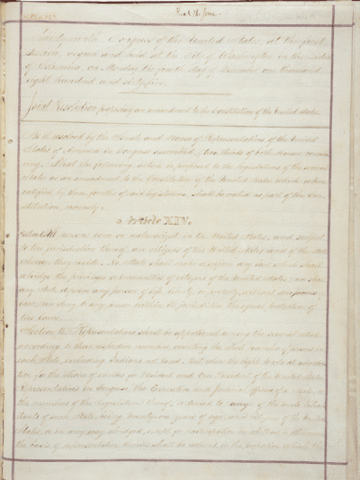 Thirty-ninth Congress of the United States, at the first
Session, begun and held at the City of Washington, in the District
of Columbia, on Monday the fourth day of December, one thousand
eight hundred and sixty-five.
Joint Resolution proposing an amendment to the Constitution of the United States.
Be it resolved by the Senate and House of Representatives of the United
States of America in Congress assembled, (two thirds of both Houses concur-
ring,) That the following article be proposed to the legislatures of the several
States as an amendment to the Constitution of the United States, which, when
ratified by three fourths of said legislatures, shall be valid as part of the Con-
stitution, namely:
Article XIV.
Section 1. All persons born or naturalized in the United States, and subject
to the jurisdiction thereof, are citizens of the United States and of the State
wherein they reside. No State shall make or enforce any law which shall
abridge the privileges or immunities of citizens of the United States; nor shall
any State deprive any person of life, liberty, or property, without due process
of law; nor deny to any person within its jurisdiction the equal protection of
the laws.
Section 2. Representatives shall be apportioned among the several States
according to their respective numbers, counting the whole number of persons in
each State, excluding Indians not taxed. But when the right to vote at any elec-
tion for the choice of electors for President and Vice President of the United States,
Representatives in Congress, the Executive and Judicial officers of a State, or
the members of the Legislature thereof, is denied to any of the male inhab-
itants of such State, being twenty-one years of age, and citizens of the United
States, or in any way abridged, except for participation in rebellion, or other
the basis of representation therein shall be reduced in the proportion which the